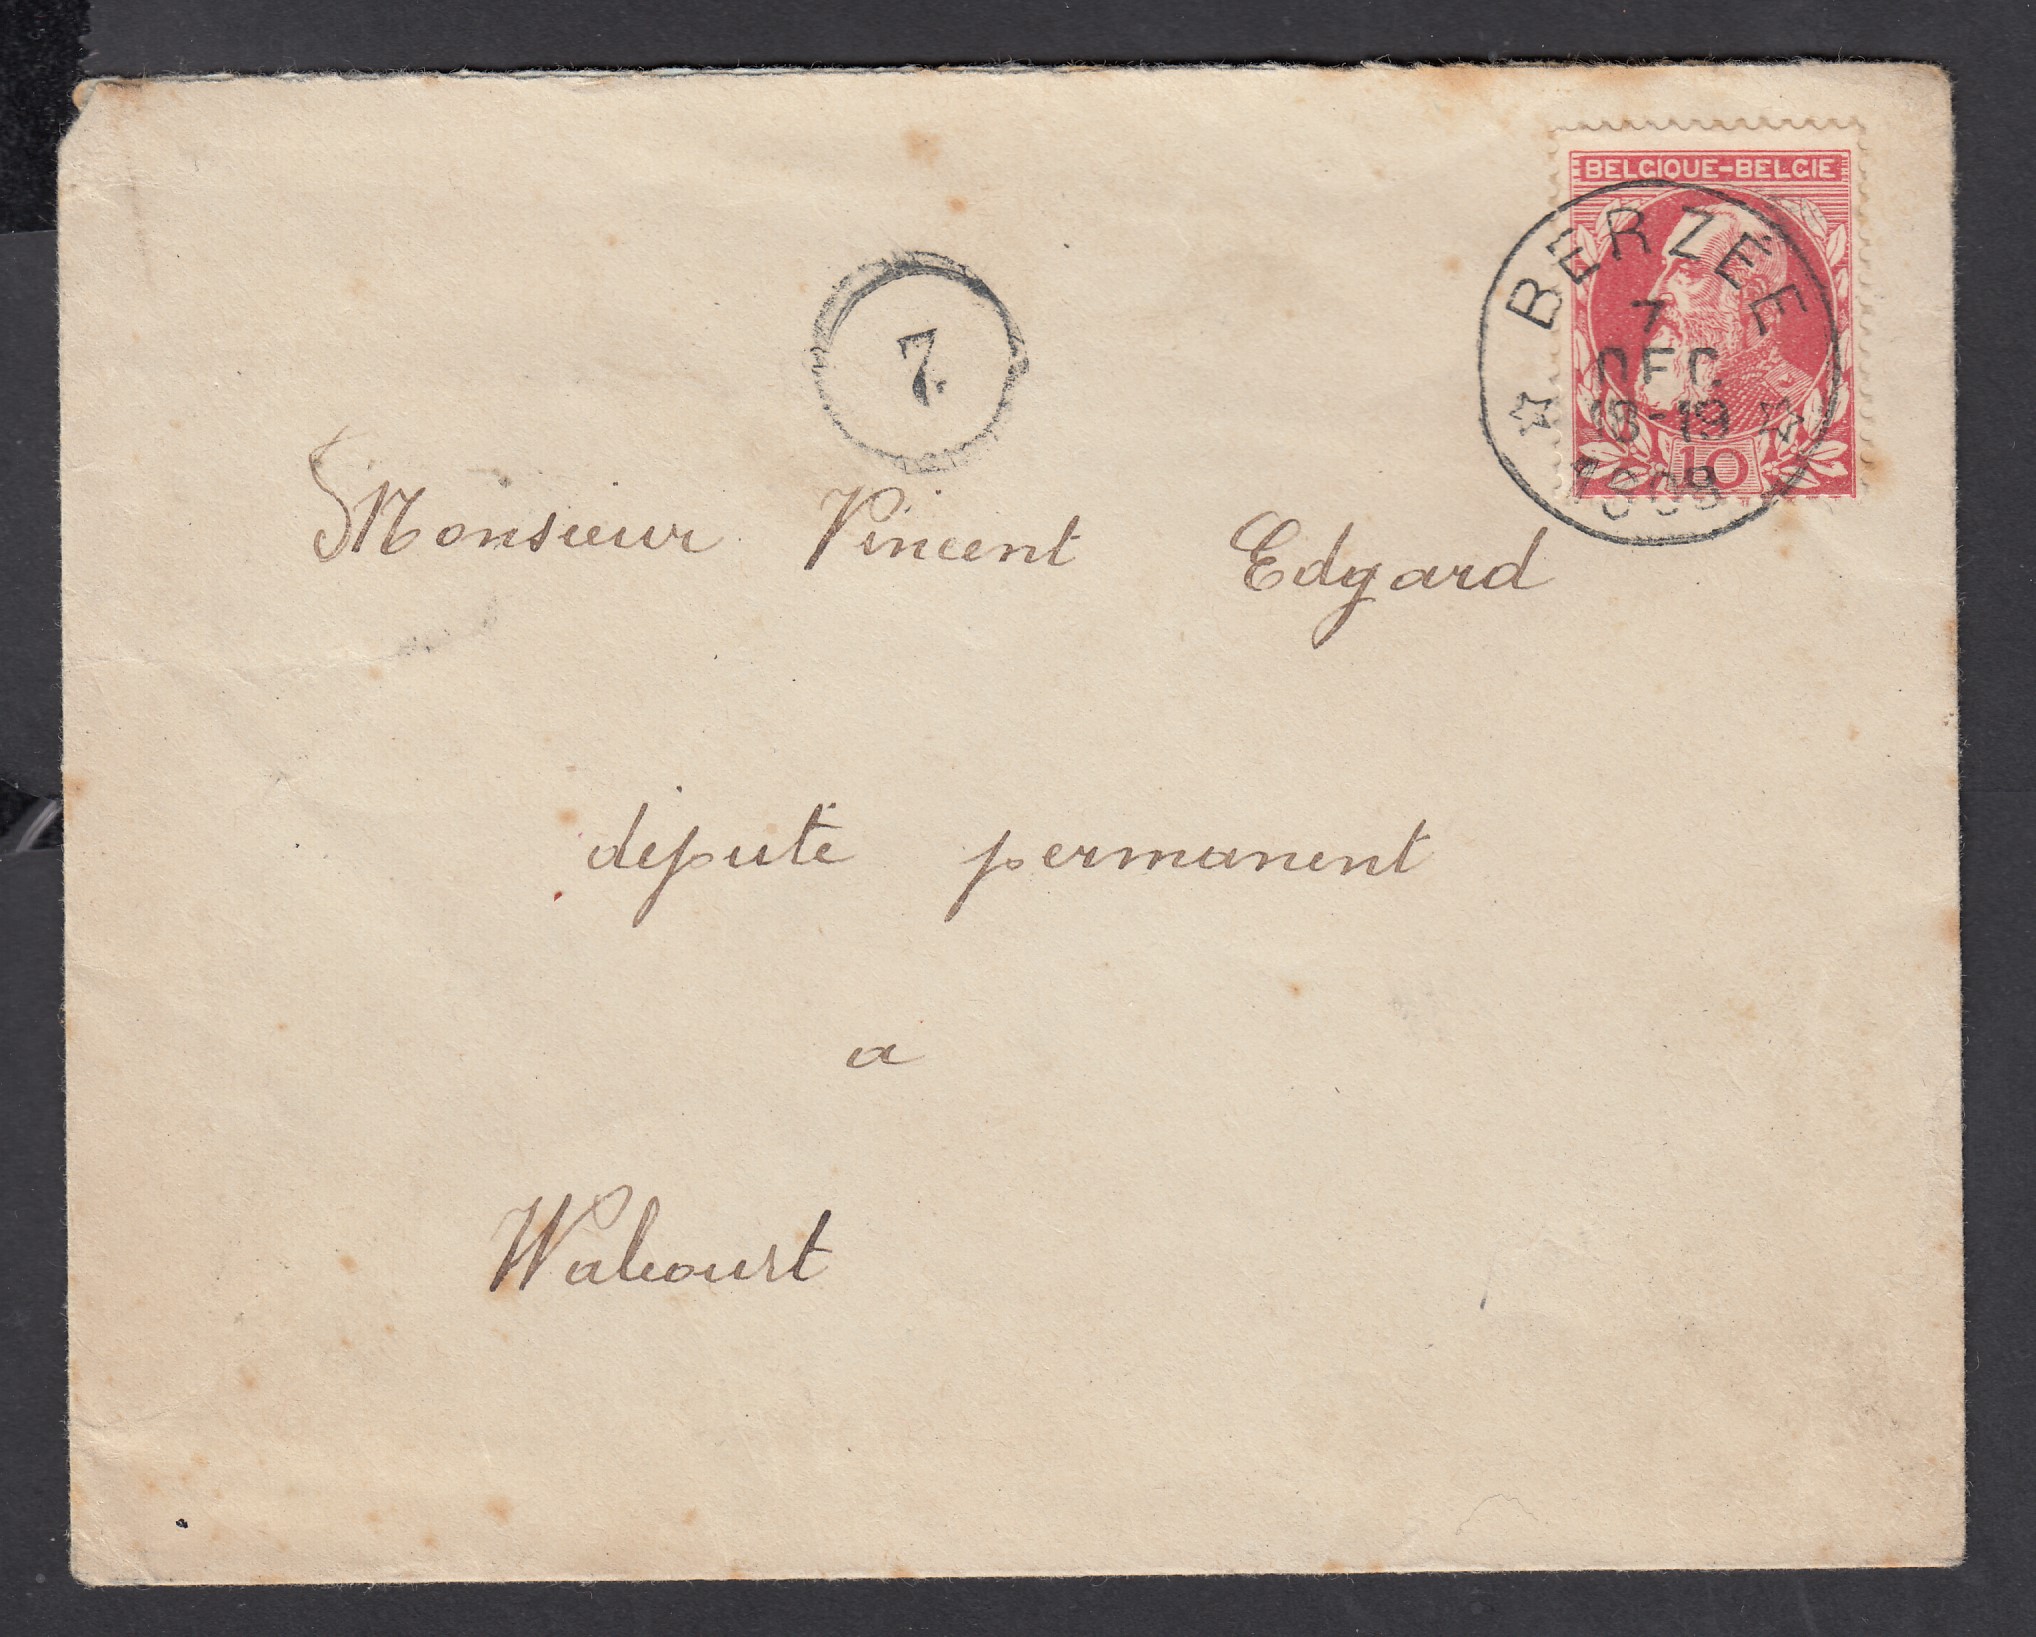 BELGIQUE-BELGIE
BERZÉE
7
DEC
18-19
1908
10
7
Monsieur Vincent Edgard
député permanent
a
Walcourt